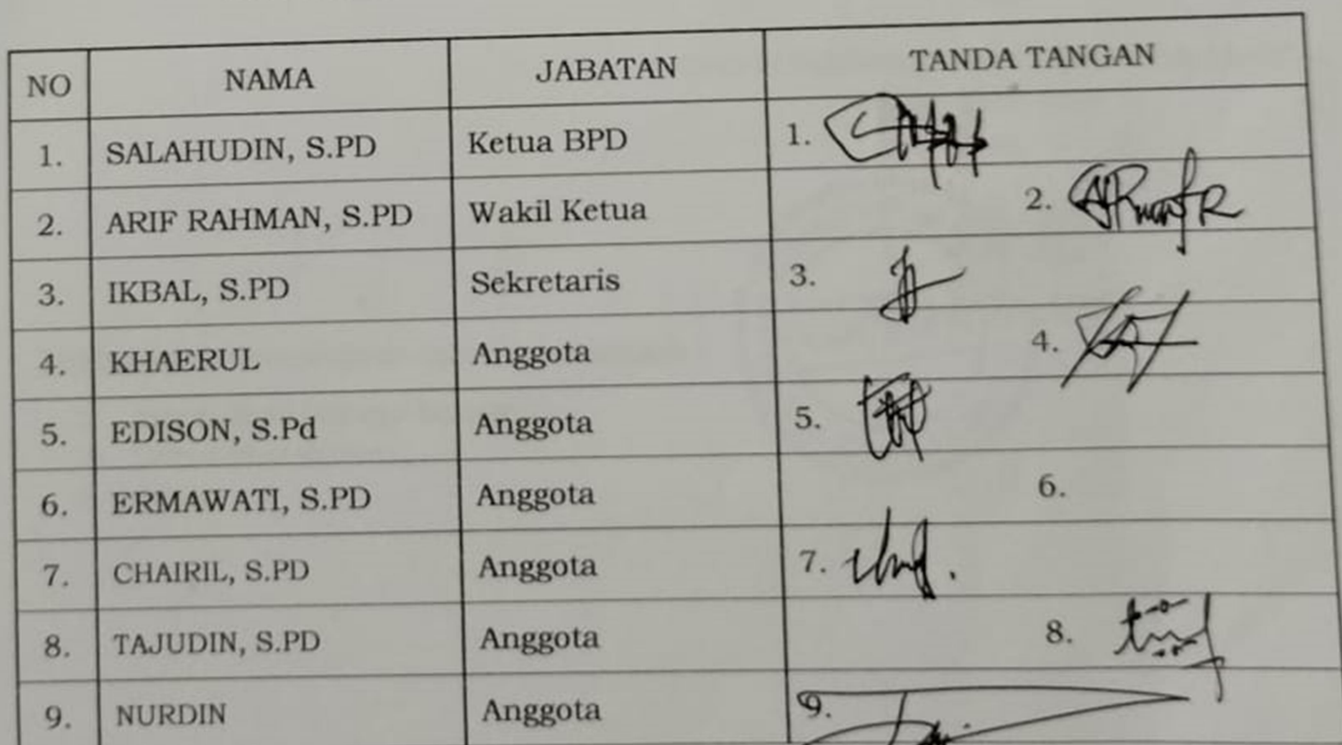 NO NAMA JABATAN TANDA TANGAN
1. SALAHUDIN, S.PD Ketua BPD 1.
2. ARIF RAHMAN, S.PD Wakil Ketua 2.
3. IKBAL, S.PD Sekretaris 3.
4. KHAERUL Anggota 4.
5. EDISON, S.Pd Anggota 5.
6. ERMAWATI, S.PD Anggota 6.
7. CHAIRIL, S.PD Anggota 7.
8. TAJUDIN, S.PD Anggota 8.
9. NURDIN Anggota 9.